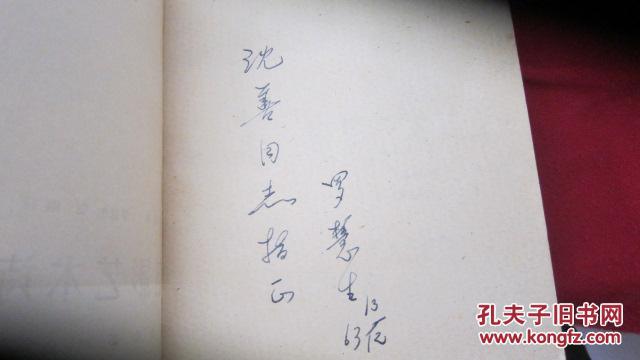 沈善同志指正
罗慧生
孔夫子旧书网
www.kongfz.com
艺术